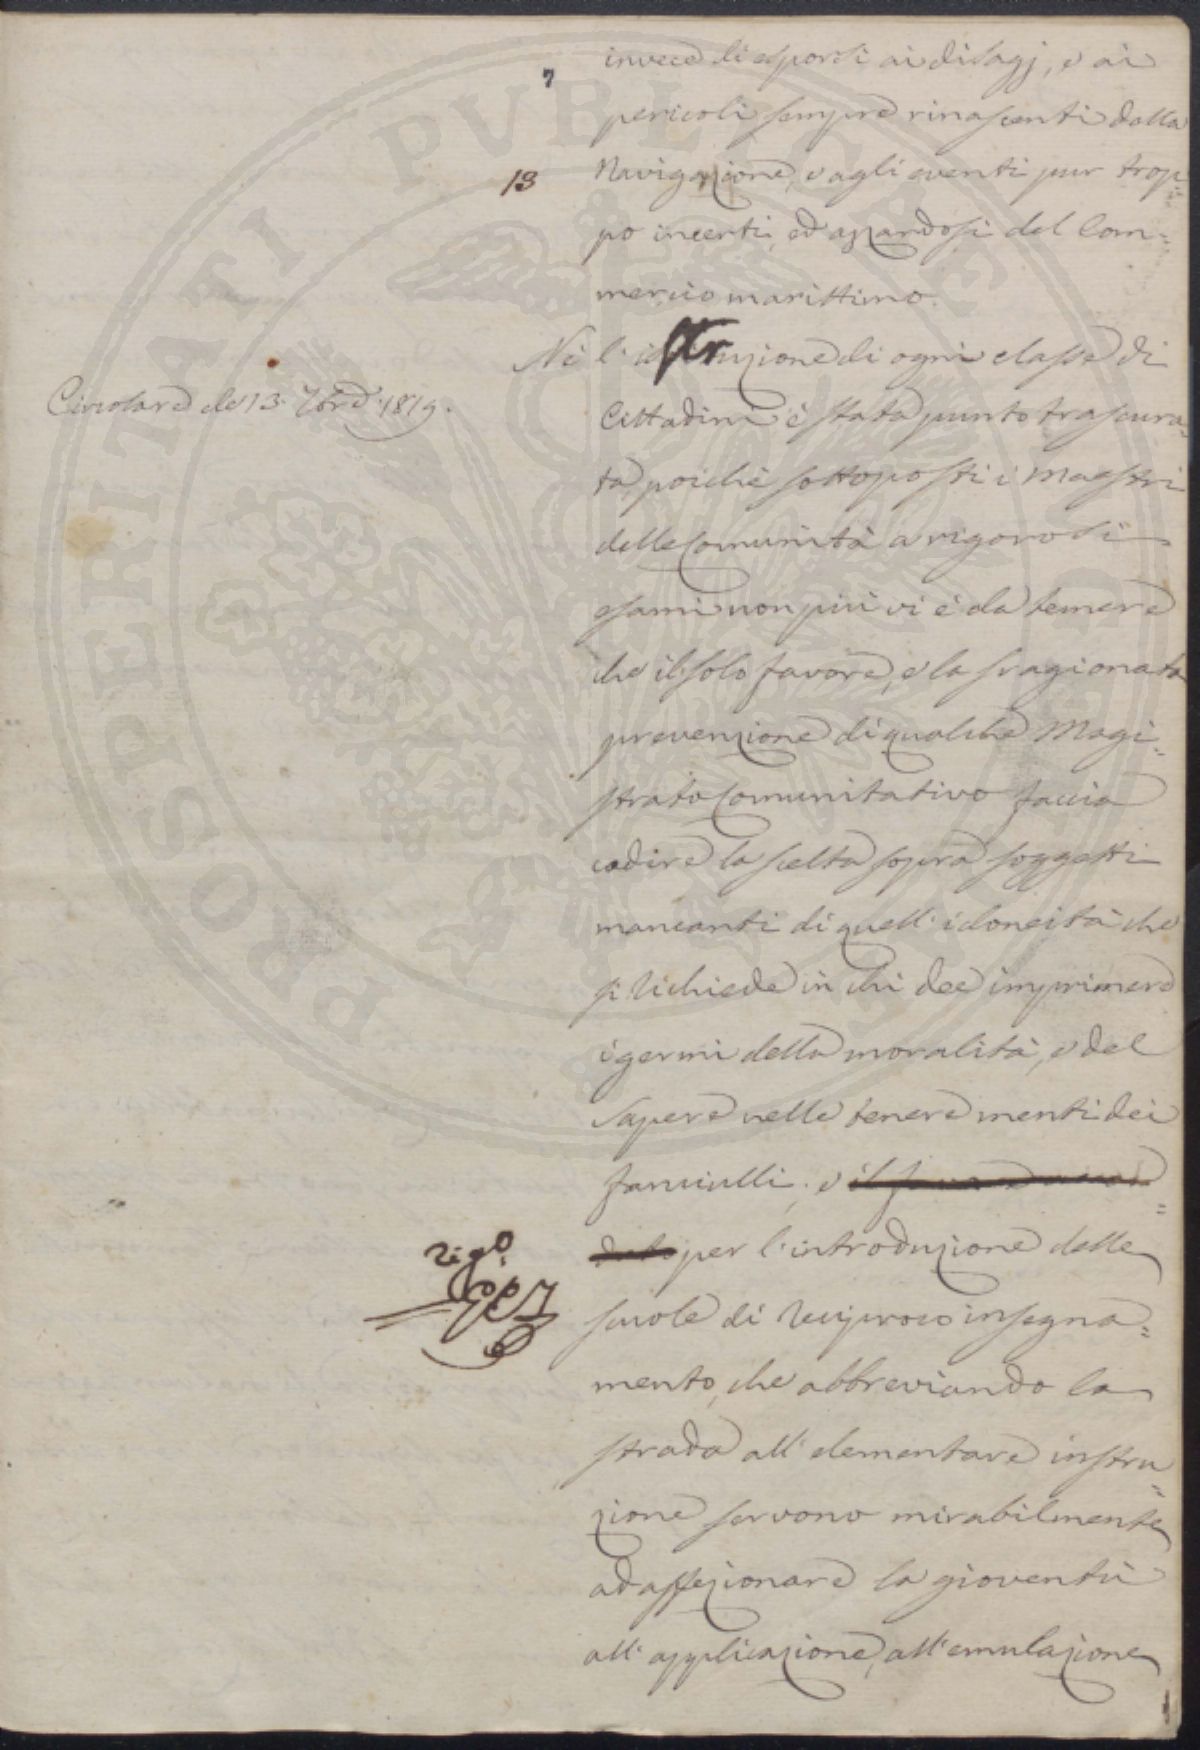 7
13
invece di esporsi ai disagj, e ai
pericoli sempre rinascenti dalla
Navigazione, e agli eventi pur trop=
po incerti, ed azzardosi del Com=
mercio marittimo.
Nè l'istruzione di ogni classe di
Circolare de' 13. 7bre 1819.
Cittadini è stata punto trascura=
ta, poichè sottoposti i Maestri
delle Comunità a rigorosi
esami non più vi è da temere
che il solo favore, e la sragionata
prevenzione di qualche Magi=
strato Comunitativo faccia
cadere la scelta sopra soggetti
mancanti di quell'idoneità che
si richiede in chi dee imprimere
i germi della moralità, e del
Sapere nelle tenere menti dei
fanciulli; e il
per l'introduzione delle
scuole di reciproco insegna=
mento, che abbreviando la
strada all'elementare instru=
zione servono mirabilmente
ad affezionare la gioventù
all'applicazione, all'emulazione
PROSPERITATI PVBLICAE